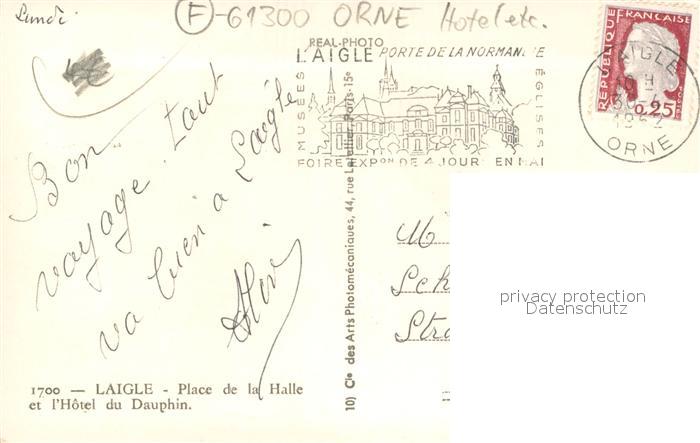 Lundi
F-61300 ORNE Hotel etc.
REAL-PHOTO
L'AIGLE PORTE DE LA NORMANDIE
MUSÉES
ÉGLISES
FOIRE EXPON DE 4 JOURS EN MAI
RÉPUBLIQUE FRANÇAISE
POSTES
0,25
LAIGLE
ORNE
Bon
voyage. tout
va bien à Laigle
10) Cie des Arts Photomécaniques, 44, rue Letellier, Paris-15e
M
Sch
Stra
privacy protection
Datenschutz
1700 — LAIGLE - Place de la Halle
et l'Hôtel du Dauphin.